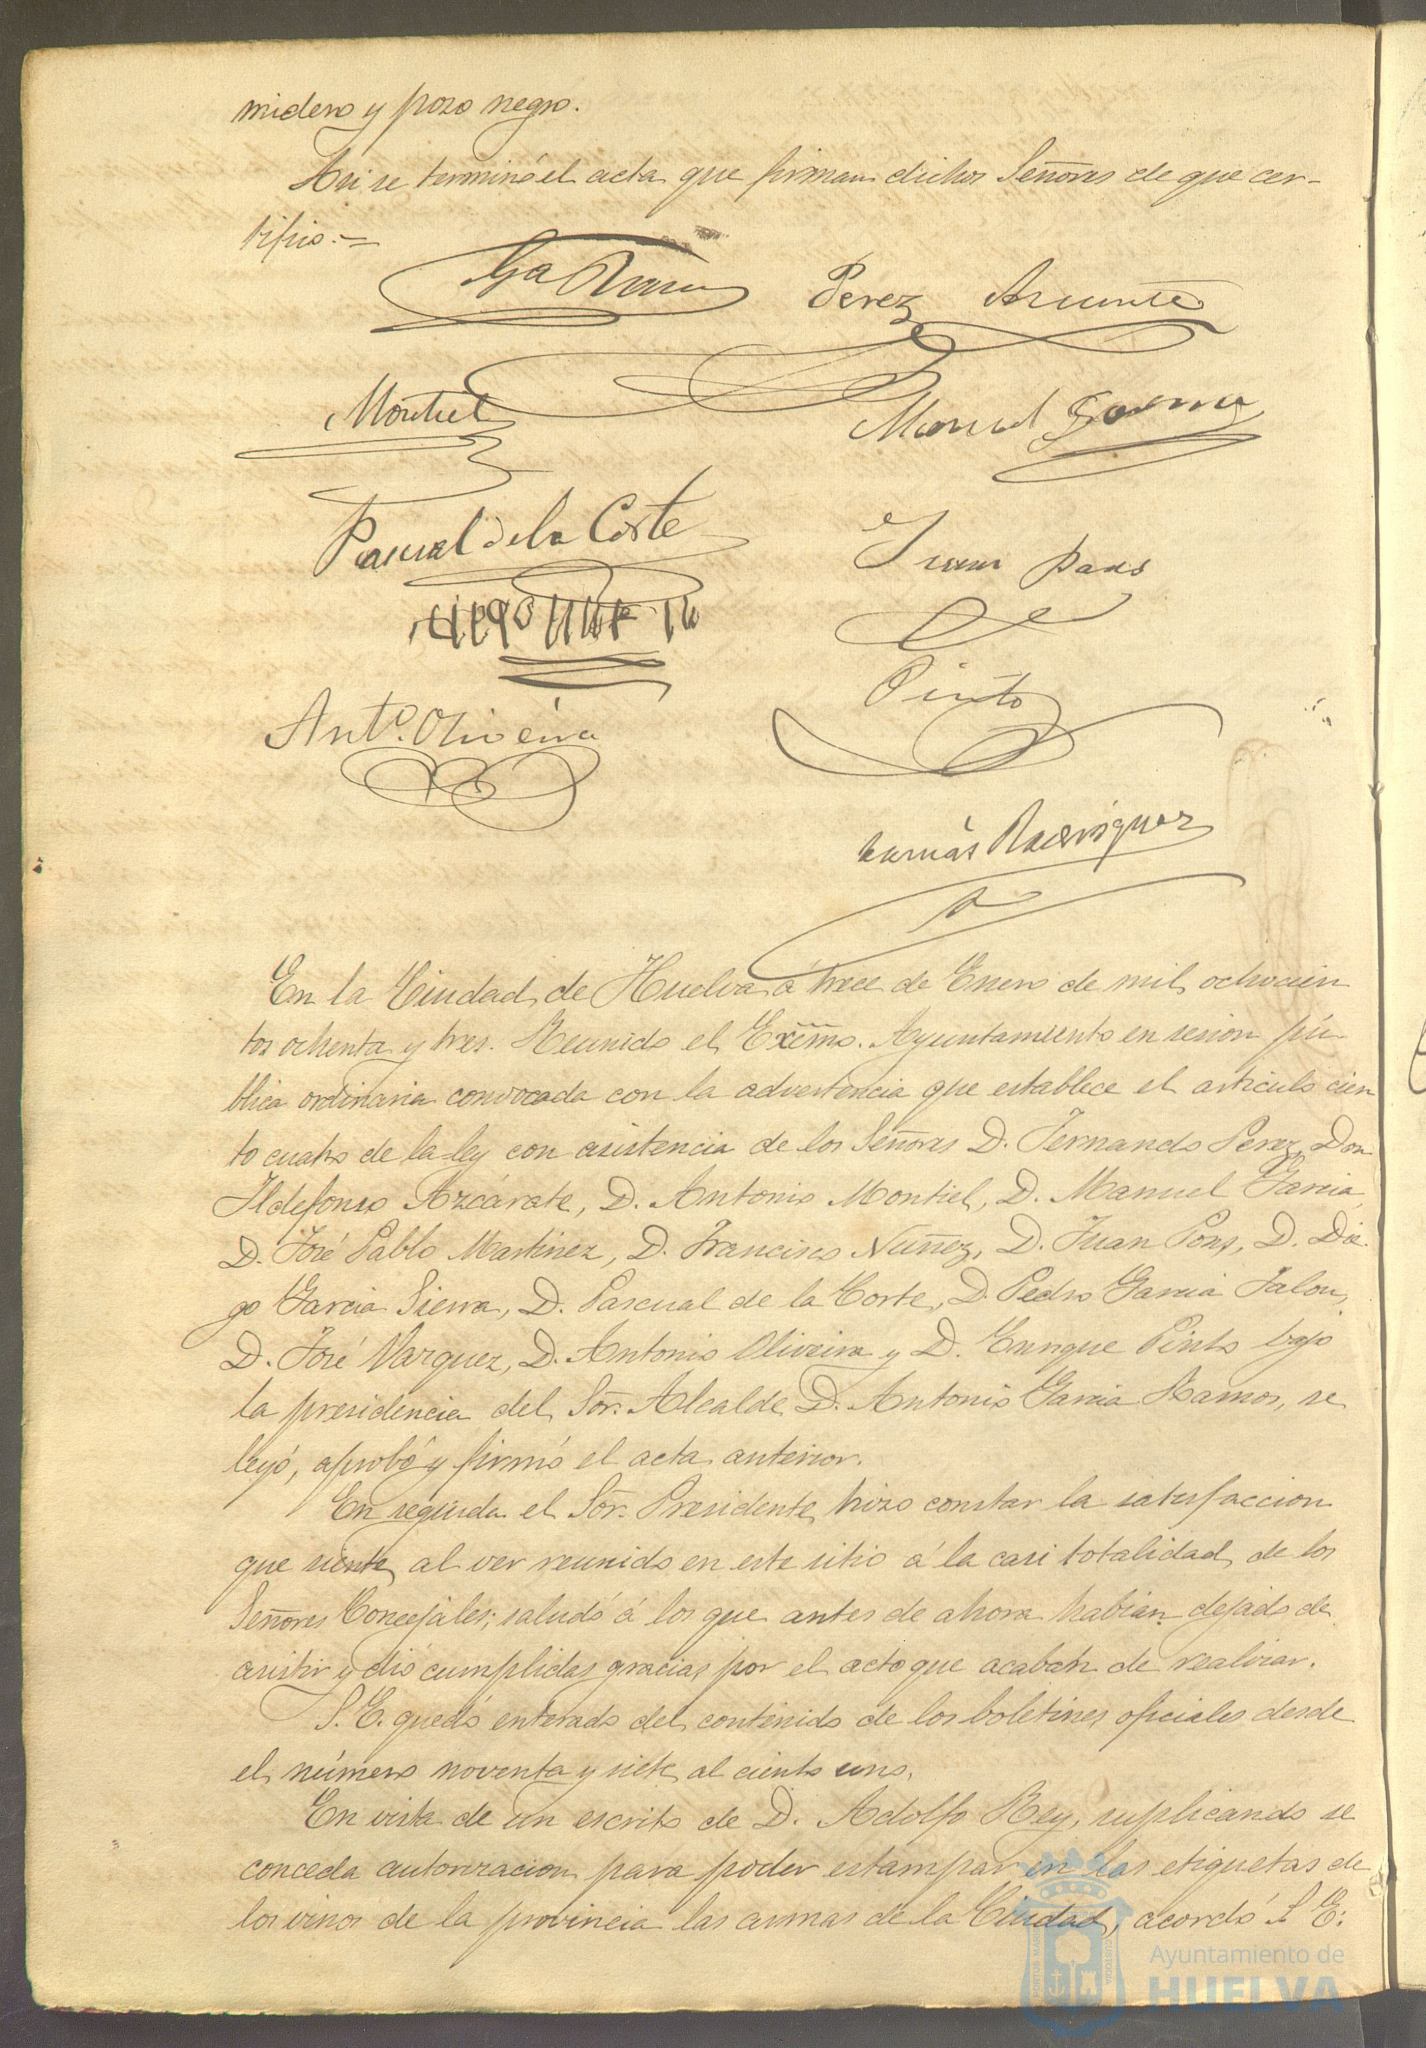 midero y pozo negro.
Asi se terminó el acta que firman dichos Señores de que cer-
tifico.=
Ga Ramos
Perez Azcarate
Montiel
Manuel Garcia
Pascual de la Corte
Juan Pons
Pinto
Anto. Oliveira
Tomás Rodriguez
En la Ciudad de Huelva á trece de Enero de mil ochocien
tos ochenta y tres. Reunido el Excmo. Ayuntamiento en sesion pú
blica ordinaria convocada con la advertencia que establece el articulo cien
to cuatro de la ley con asistencia de los Señores D. Fernando Perez, Don
Ildefonso Azcárate, D. Antonio Montiel, D. Manuel Garcia,
D. José Pablo Martinez, D. Francisco Nuñez, D. Juan Pons, D. Die-
go Garcia Sierra, D. Pascual de la Corte, D. Pedro Garcia Jalon,
D. José Vazquez, D. Antonio Oliveira y D. Enrique Pinto bajo
la presidencia del Sor. Alcalde D. Antonio Garcia Ramos, se
leyó, aprobó y firmó el acta anterior.
En seguida el Sor. Presidente hizo constar la satisfaccion
que siente al ver reunido en este sitio á la casi totalidad de los
Señores Concejales; saludó á los que antes de ahora habian dejado de
asistir y dió cumplidas gracias por el acto que acaban de realizar.
S. E. quedó enterado del contenido de los boletines oficiales desde
el número noventa y siete al ciento uno.
En vista de un escrito de D. Adolfo Rey, suplicando se
conceda autorizacion para poder estampar en las etiquetas de
los vinos de la provincia las armas de la Ciudad, acordó S. E.
Ayuntamiento de
HUELVA